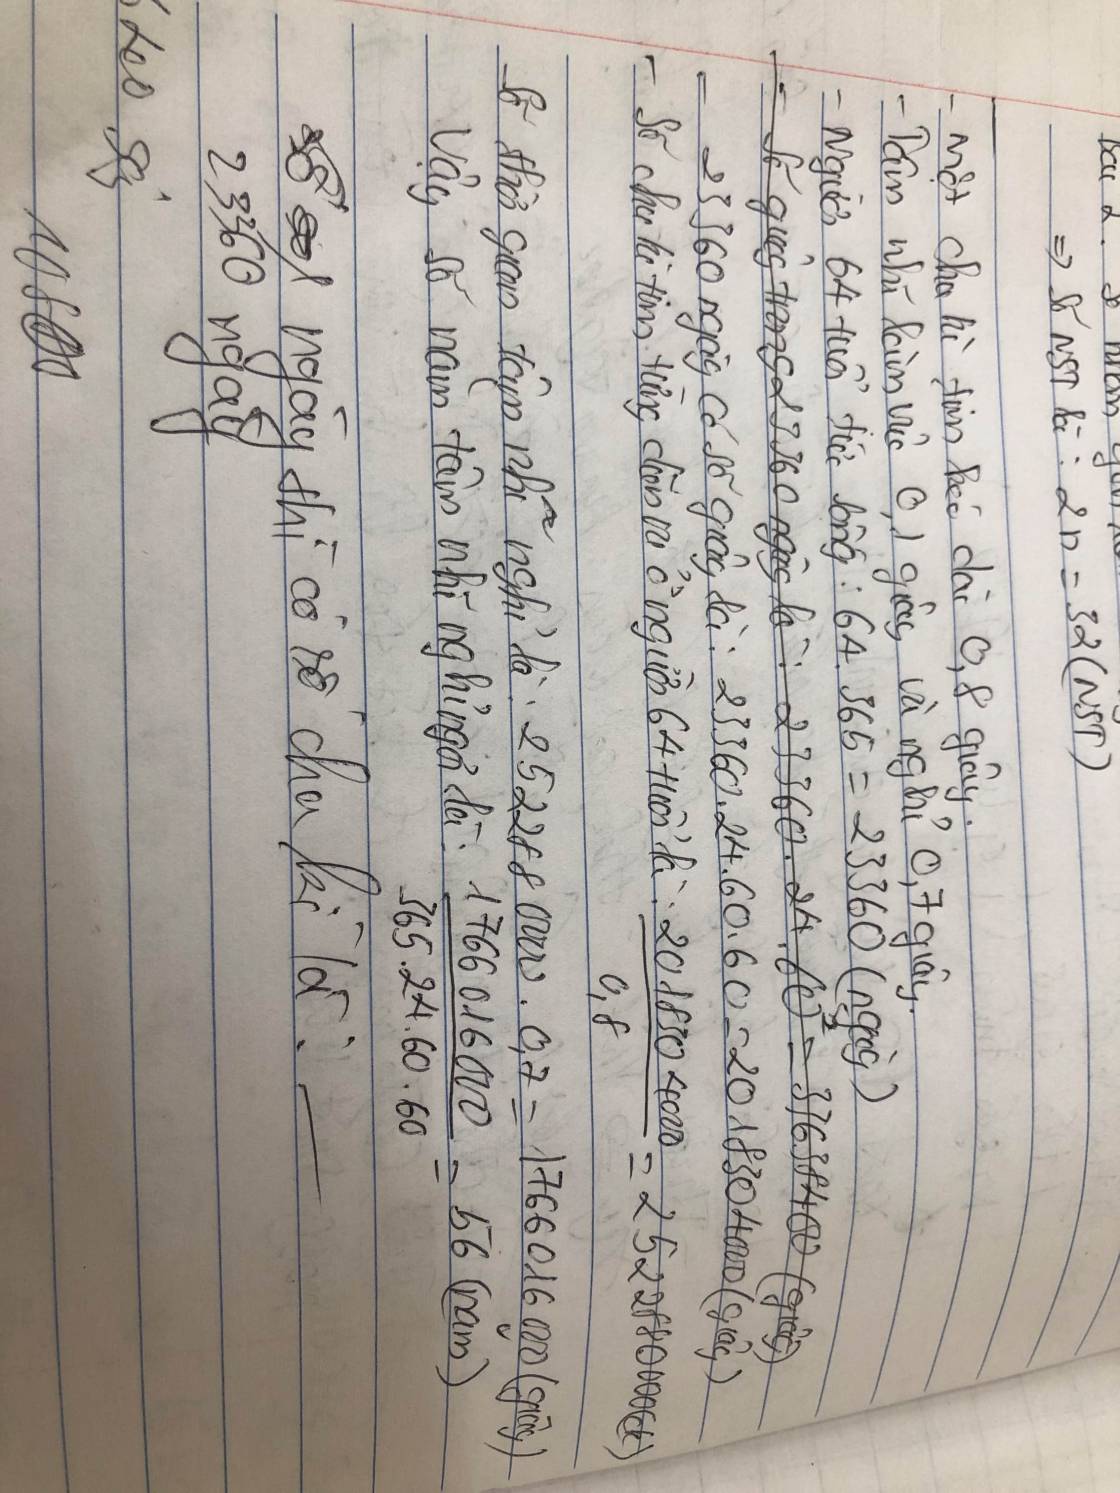 ⇒ số NST là: 2n = 32 (NST)
- Một chu kì tim kéo dài 0,8 giây.
- Tâm nhĩ làm việc 0,1 giây và nghỉ 0,7 giây.
- Người 64 tuổi tức bằng: 64.365 = 23360 (ngày)
- Số giây trong 23360 ngày là: 23360.24.60² =
- 23360 ngày có số giây là: 23360.24.60.60 = 2018304000 (giây)
- Số chu kì tim từng diễn ra ở người 64 tuổi là: 2018304000 / 0,8 = 2522880000 (ck)
- Số thời gian tâm nhĩ nghỉ là: 2522880000.0,7 = 1766016000 (giây)
Vậy số năm tâm nhĩ nghỉ ngơi là: 1766016000 / 365.24.60.60 = 56 (năm)
Số 1 ngày thì có số chu kì là:
23360 ngày